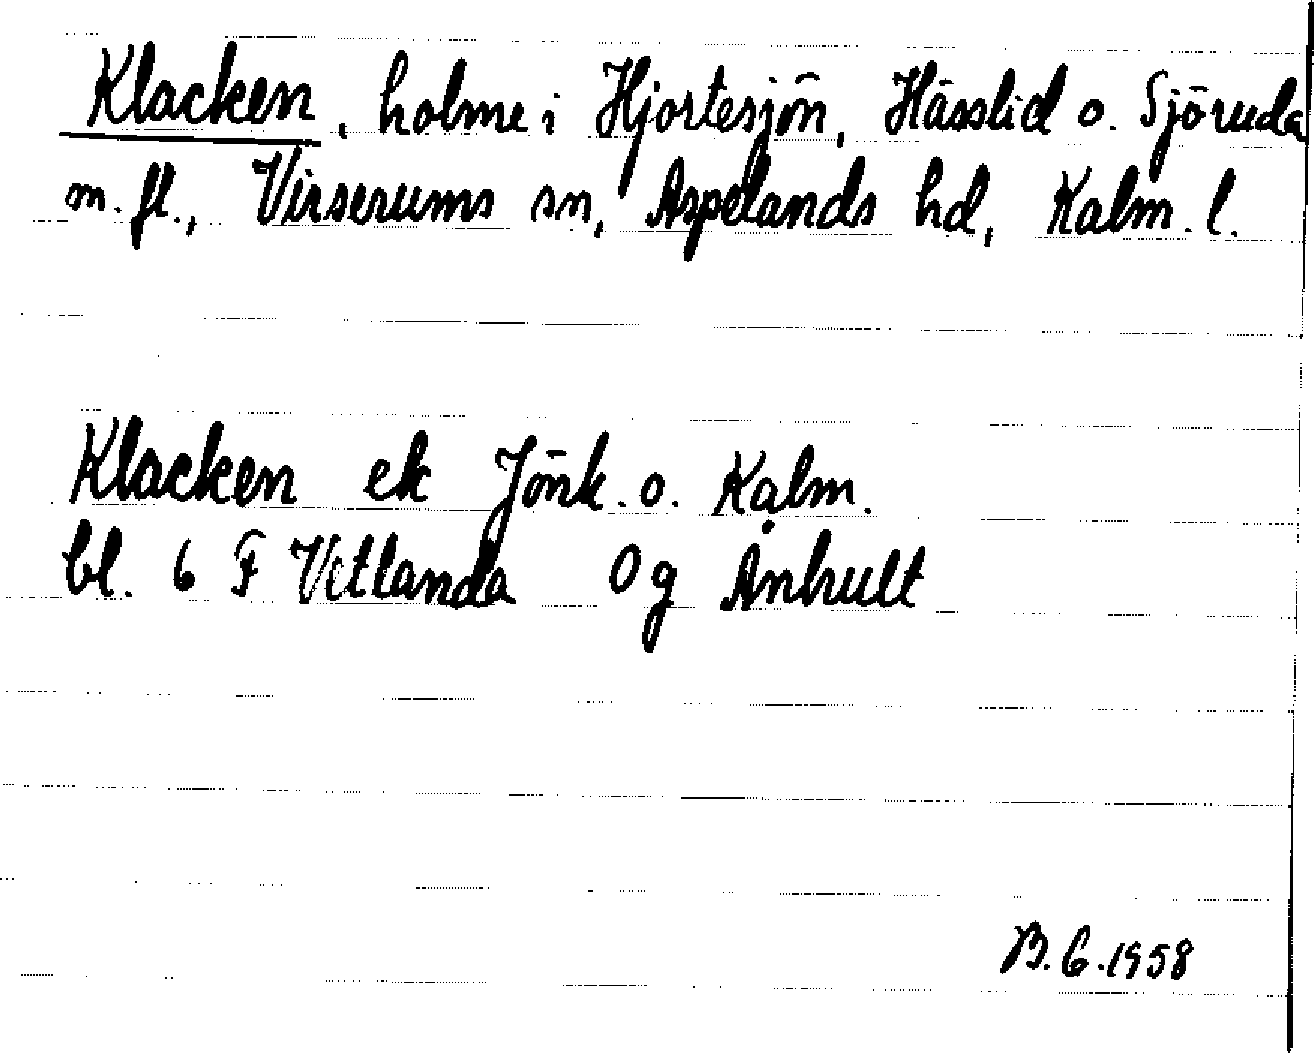 Klacken, holme i Hjortesjön, Hässlid o. Sjöruda
m. fl., Virserums sn, Aspelands hd, Kalm. l.
Klacken ek Jönk. o. Kalm.
bl. 6 F Vetlanda 0 g Ånhult
B. G. 1958